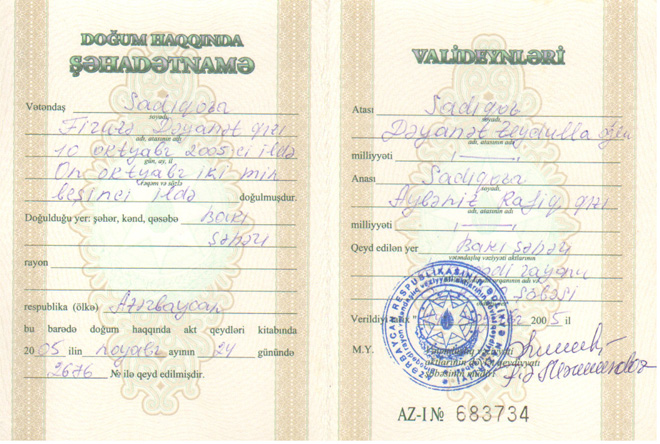 DOĞUM HAQQINDA
ŞƏHADƏTNAMƏ
Vətəndaş Sadıqova
soyadı,
Firuzə Dəyanət qızı
adı, atasının adı
10 oktyabr 2005-ci ildə
gün, ay, il
On oktyabr iki min
rəqəm və sözlə
beşinci ildə doğulmuşdur.
Doğulduğu yer: şəhər, kənd, qəsəbə Bakı
şəhəri
rayon
respublika (ölkə) Azərbaycan
bu barədə doğum haqqında akt qeydləri kitabında
2005 ilin noyabr ayının 24 günündə
2676 № ilə qeyd edilmişdir.
VALİDEYNLƏRİ
Atası Sadıqov
soyadı,
Dəyanət oğlu
adı, atasının adı
milliyyəti
Anası Sadıqova
soyadı,
Aybəniz Rafiq qızı
adı, atasının adı
milliyyəti
Qeyd edilən yer Bakı şəhəri
vətəndaşlıq vəziyyəti aktlarının
rayonu
orqanının adı və
şöbəsi
2005 il
M.Y. Vətəndaşlıq vəziyyəti
aktlarının dövlət qeydiyyatı
şöbəsinin müdiri
AZƏRBAYCAN RESPUBLİKASININ ƏDLİYYƏ NAZİRLİYİ
AZ-I № 683734